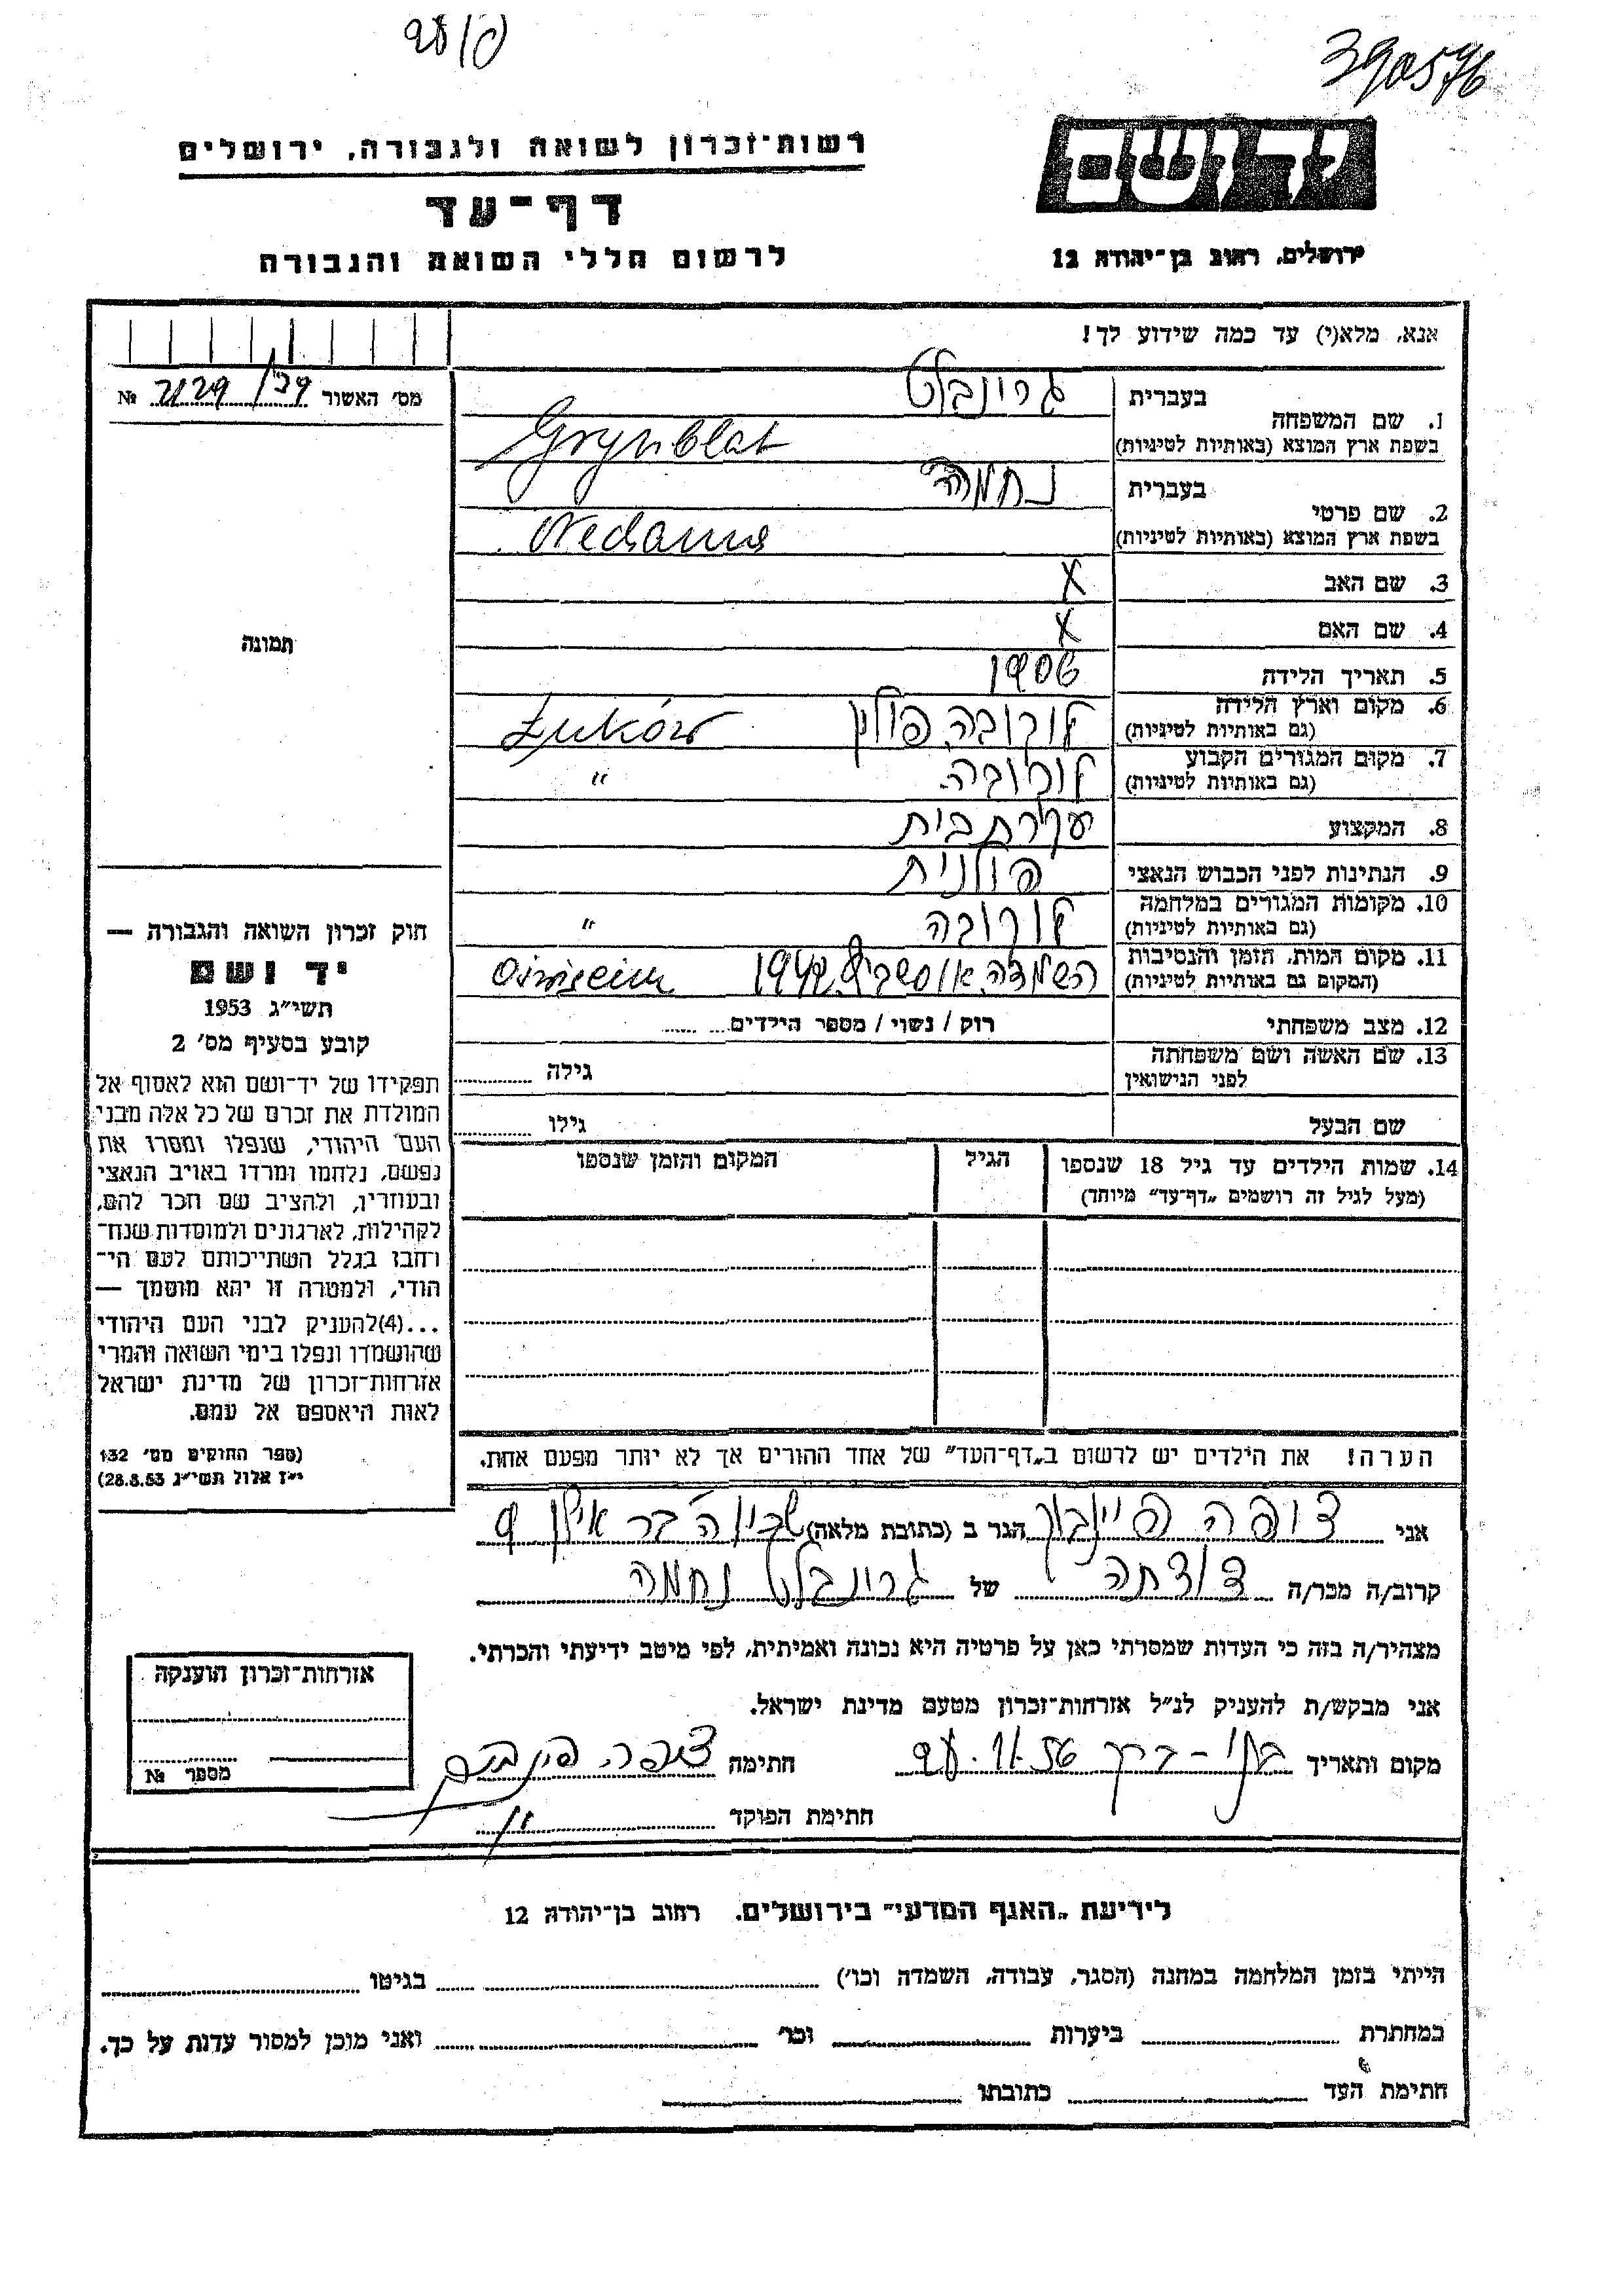 390576
רשות־זכרון לשואה ולגבורה, ירושלים
ידושם
דף־עד
ירושלים, רחוב בן־יהודה 12
לרשום חללי השואה והגבורה
אנא, מלא(י) עד כמה שידוע לך!
מס' האשור
№
1. שם המשפחה
בעברית
גרינבלט
בשפת ארץ המוצא (באותיות לטיניות)
Grynblat
2. שם פרטי
בעברית
נחמה
בשפת ארץ המוצא (באותיות לטיניות)
Nechama
3. שם האב
X
4. שם האם
X
5. תאריך הלידה
1906
6. מקום וארץ הלידה
(גם באותיות לטיניות)
לוקובה, פולין Łuków
7. מקום המגורים הקבוע
(גם באותיות לטיניות)
לוקובה "
8. המקצוע
עקרת בית
9. הנתינות לפני הכבוש הנאצי
פולנית
10. מקומות המגורים במלחמה
(גם באותיות לטיניות)
לוקובה "
11. מקום המות, הזמן והנסיבות
(המקום גם באותיות לטיניות)
השמדה 1942
12. מצב משפחתי
רוק / נשוי / מספר הילדים
13. שם האשה ושם משפחתה
לפני הנישואין
גילה
שם הבעל
גילו
14. שמות הילדים עד גיל 18 שנספו
(מעל לגיל זה רושמים „דף־עד״ מיוחד)
הגיל
המקום והזמן שנספו
תמונה
חוק זכרון השואה והגבורה —
יד ושם
תשי״ג 1953
קובע בסעיף מס' 2
תפקידו של יד־ושם הוא לאסוף אל
המולדת את זכרם של כל אלה מבני
העם היהודי, שנפלו ומסרו את
נפשם, נלחמו ומרדו באויב הנאצי
ובעוזריו, ולהציב שם וזכר להם,
לקהילות, לארגונים ולמוסדות שנח־
רחבו בגלל השתייכותם לעם הי־
הודי, ולמטרה זו יהא מוסמך —
...(4)להעניק לבני העם היהודי
שהושמדו ונפלו בימי השואה והמרי
אזרחות־זכרון של מדינת ישראל
לאות היאספם אל עמם.
(ספר החוקים מס' 132
י״ז אלול תשי״ג 28.8.53)
הערה! את הילדים יש לרשום ב„דף־העד״ של אחד ההורים אך לא יותר מפעם אחת.
אני צופה הגר ב (כתובת מלאה) בר אילן 9
קרוב/ה מכר/ה של גרינבלט נחמה
מצהיר/ה בזה כי העדות שמסרתי כאן על פרטיה היא נכונה ואמיתית, לפי מיטב ידיעתי והכרתי.
אני מבקש/ת להעניק לנ״ל אזרחות־זכרון מטעם מדינת ישראל.
מקום ותאריך בני-ברק 11.56 חתימה
חתימת הפוקד
אזרחות־זכרון הוענקה
מספר №
לידיעת „האגף המדעי״ בירושלים. רחוב בן־יהודה 12
הייתי בזמן המלחמה במחנה (הסגר, עבודה, השמדה וכו') בגיטו
במחתרת ביערות וכו' ואני מוכן למסור עדות על כך.
חתימת העד כתובתו